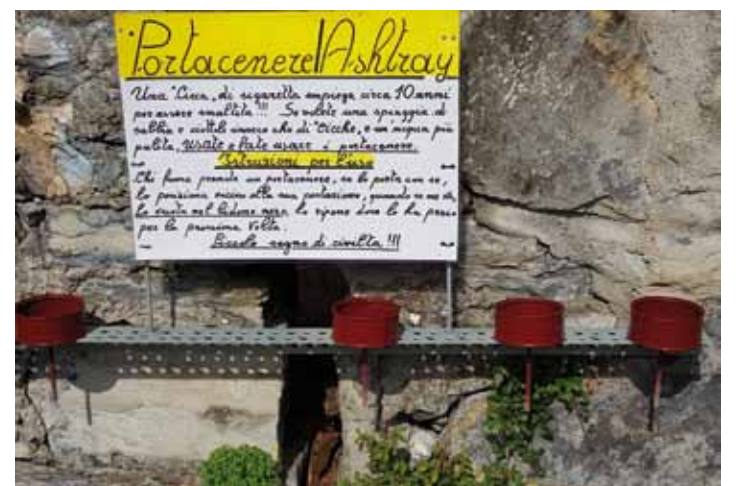 Portacenere/Ashtray
Una "Cicca" di sigaretta impiega circa 10 anni
per essere smaltita!!! Se volete una spiaggia di
sabbia e ciottoli invece che di "Cicche", e un acqua più
pulita, usate e fate usare i portacenere.
Istruzioni per l'uso
Chi fuma prende un portacenere, se lo porta con se,
lo posiziona vicino alla sua postazione, quando se ne va,
lo vuota nel bidone nero, lo ripone dove lo ha preso
per la prossima volta.
Piccolo segno di civiltà!!!